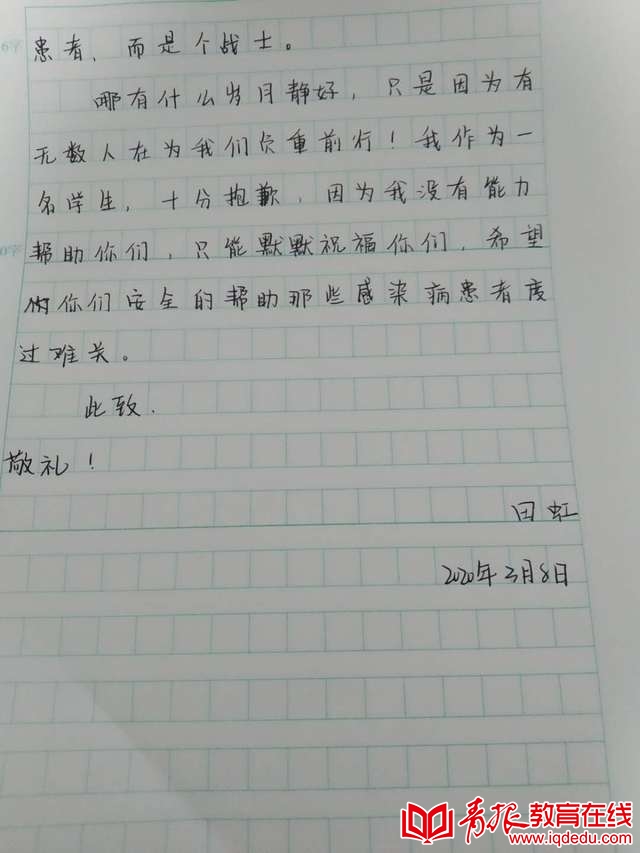 患者，而是个战士。
哪有什么岁月静好，只是因为有
无数人在为我们负重前行！我作为一
名学生，十分抱歉，因为我没有能力
帮助你们，只能默默祝福你们，希望
你们安全的帮助那些感染病患者度
过难关。
此致.
敬礼！
田虹
2020年3月8日
青报教育在线
www.iqdedu.com